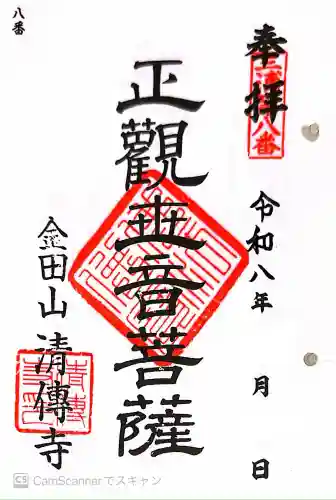 八番
奉拝
三浦
八番
令和八年 月 日
正觀世音菩薩
金田山 清傳寺
CS CamScannerでスキャン